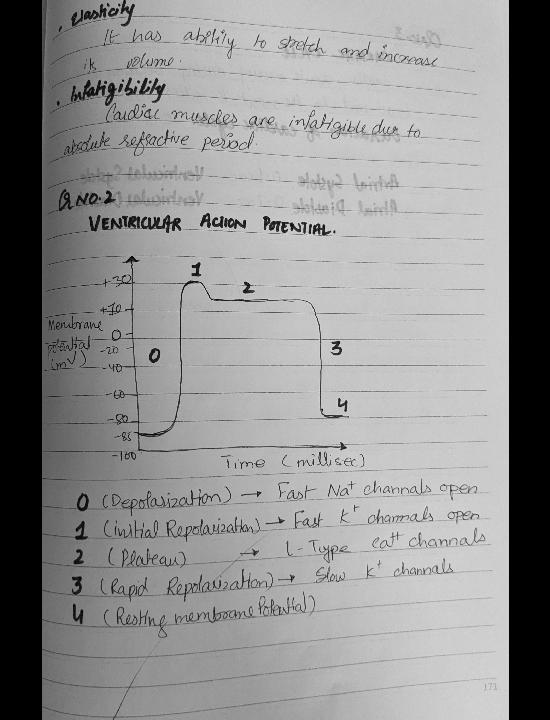 . Elasticity
It has ability to stretch and increase
its volume.
. Infatigibility
Cardiac muscles are infatigible due to
absolute refractive period.
Q NO. 2
VENTRICULAR ACTION POTENTIAL.
+30
1
2
+10
Membrane
potential
(mV)
0
-20
-40
-60
-80
-85
-100
0
3
4
Time (millisec)
0 (Depolarization) → Fast Na+ channels open
1 (initial Repolarization) → Fast K+ channels open
2 (Plateau) → L-Type Ca++ channels
3 (Rapid Repolarization) → Slow K+ channels
4 (Resting membrane Potential)
171